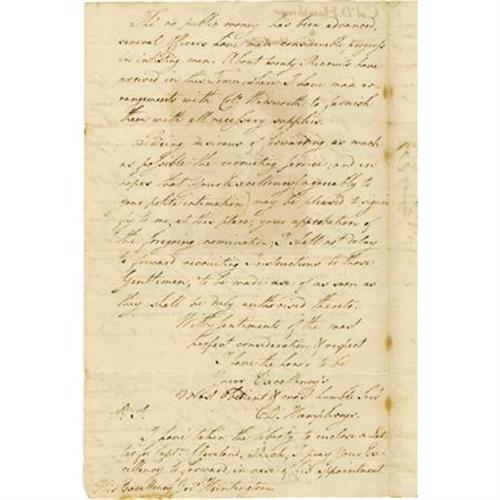 Tho' no public money has been advanced,
several Officers have made considerable progress
in inlisting men. About twenty Recruits have
arrived in this Town, where I have made ar-
rangements with Colo. Wadsworth to furnish
them with all necessary supplies.
Being desirous of forwarding as much
as possible the recruiting service; and in
hopes that Your Excellency (agreeably to
your polite intimation) may be pleased to signi-
fy to me, at this place, your approbation of
the foregoing nomination; I shall not delay
to forward recruiting Instructions to those
Gentlemen, to be made use of as soon as
they shall be duly authorised thereto.
With Sentiments of the most
perfect consideration & respect
I have the honor to be
Your Excellency's
Most Obedient & most humble Servt
D. Humphreys
P. S.
I have taken the liberty to enclose a Let-
ter for Capt. Cleveland, which, I pray Your Ex-
cellency to forward, in case of his appointment
His Excellency Govr Huntington